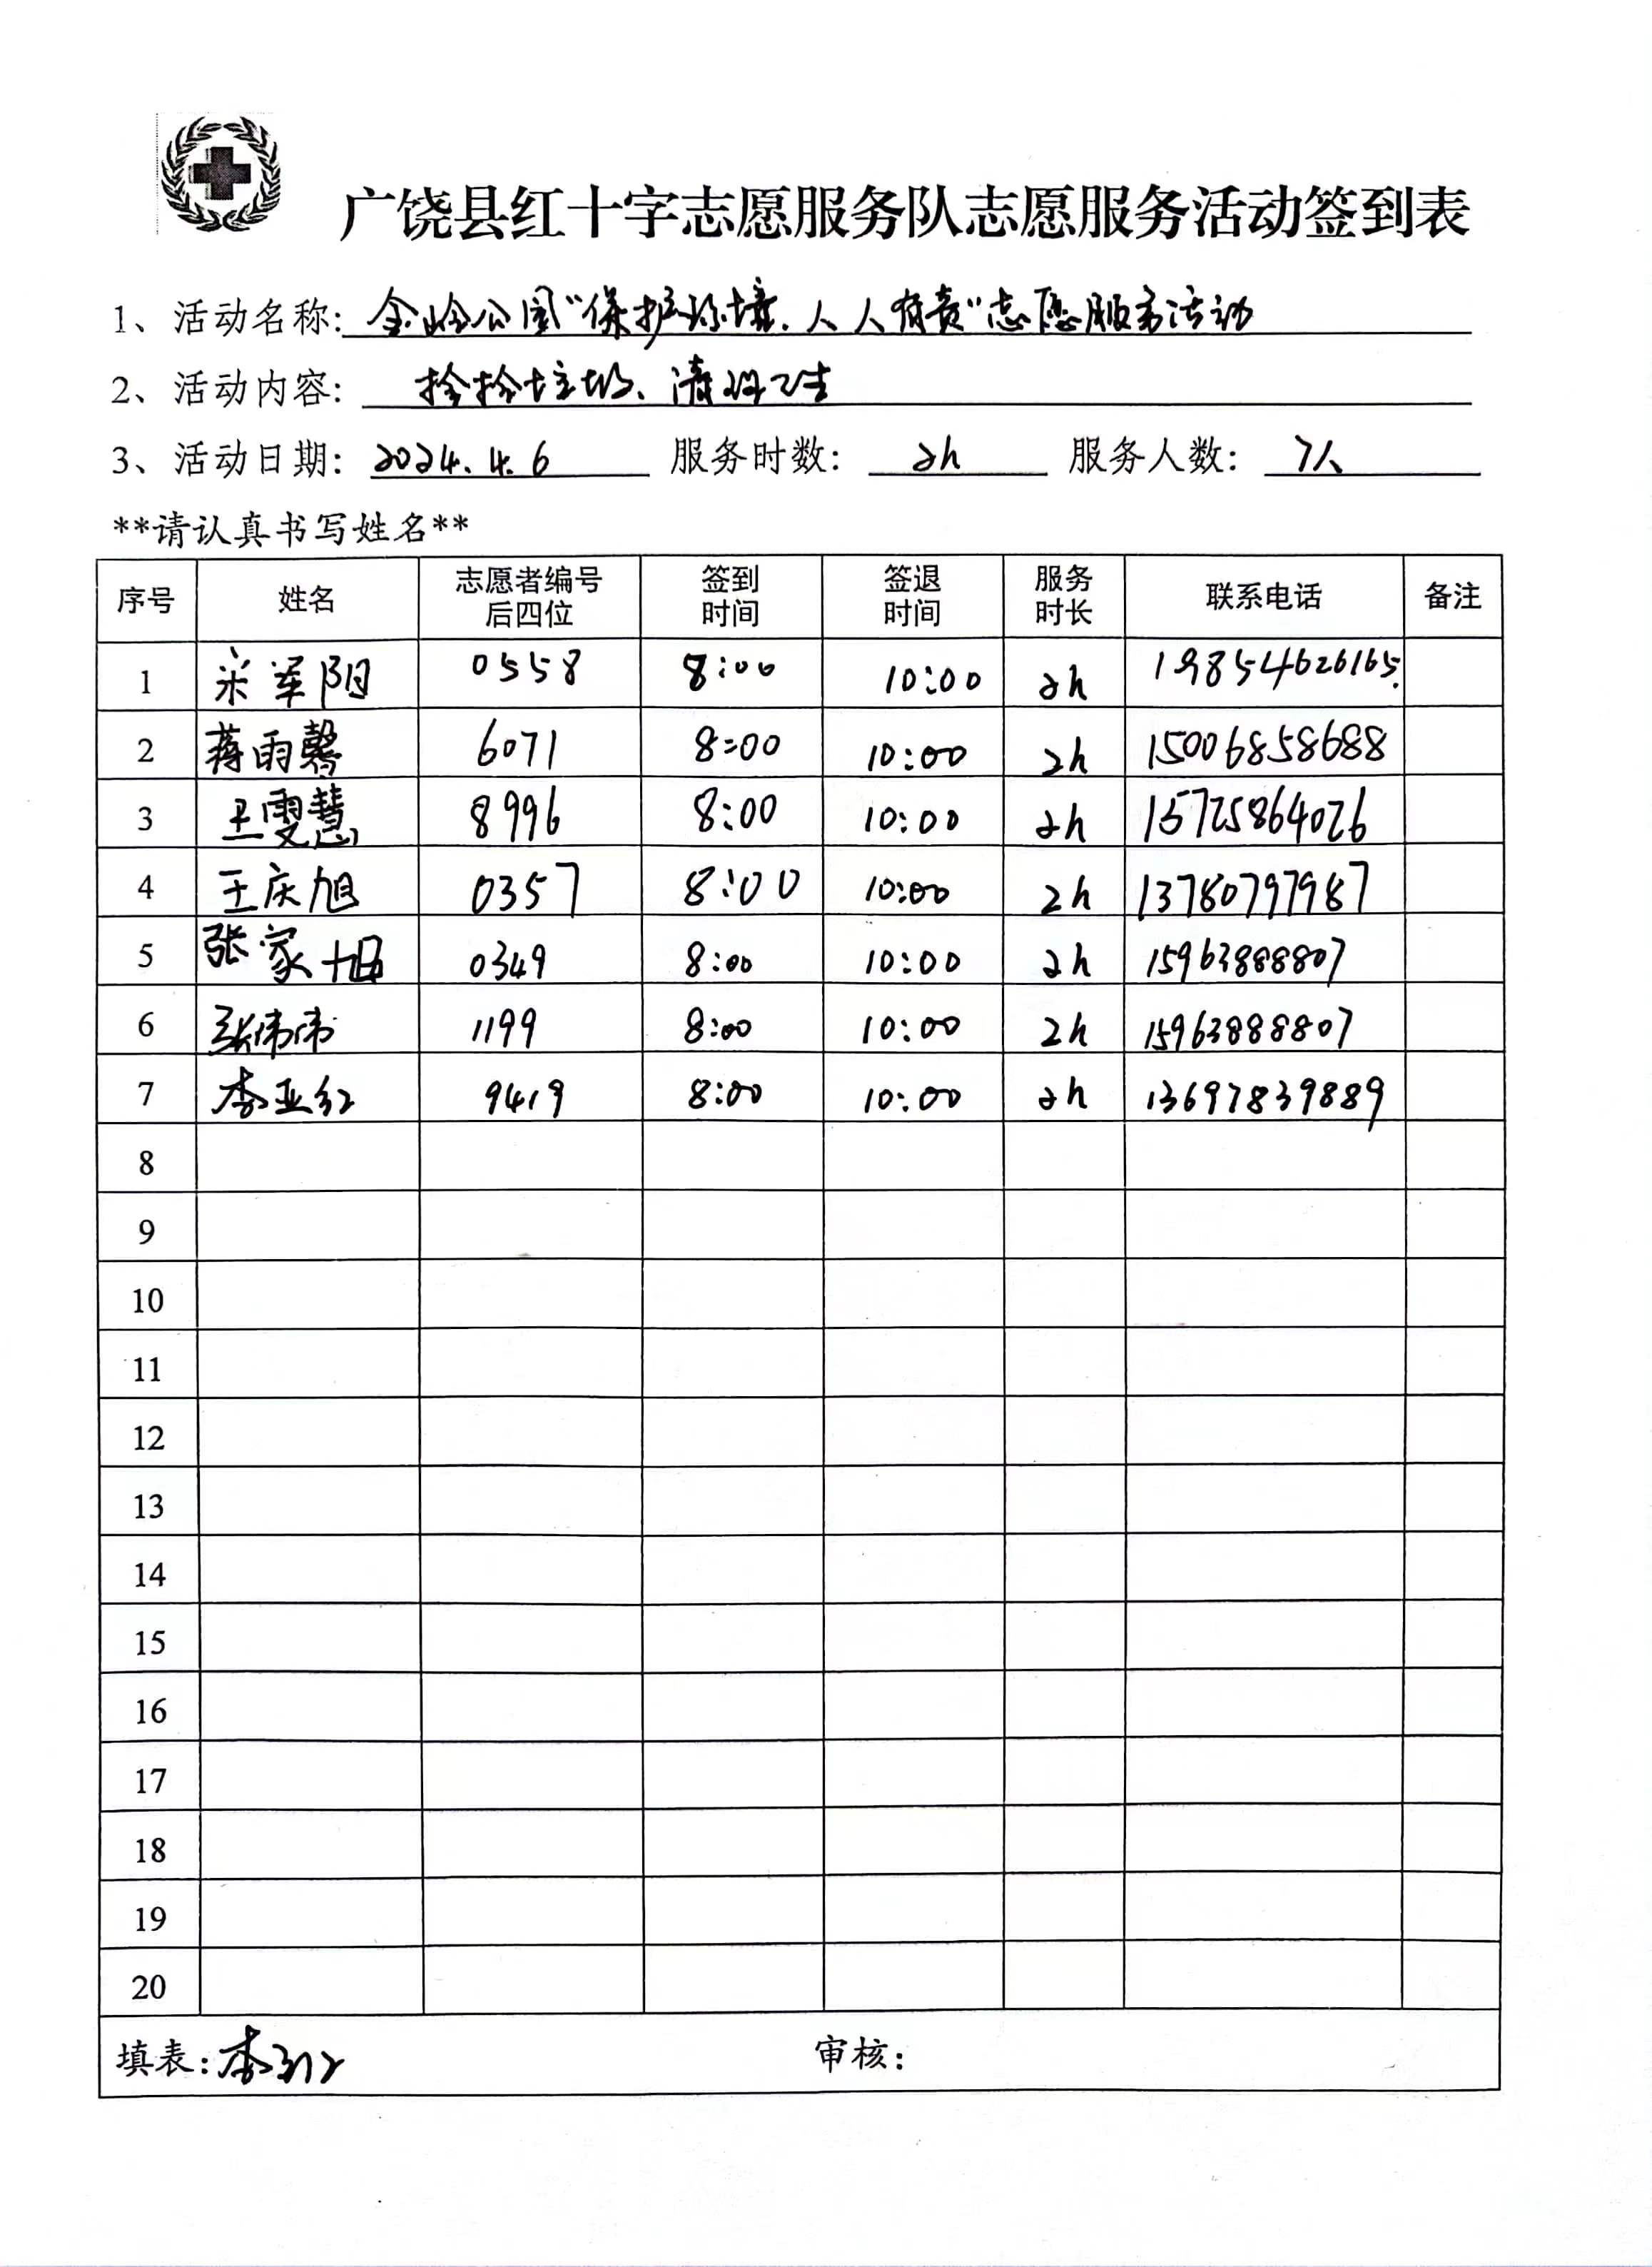 广饶县红十字志愿服务队志愿服务活动签到表
1、活动名称: 金岭公园“保护环境.人人有责”志愿服务活动
2、活动内容: 捡拾垃圾、清理卫生
3、活动日期: 2024.4.6 服务时数: 2h 服务人数: 7人
**请认真书写姓名**
序号 姓名 志愿者编号后四位 签到时间 签退时间 服务时长 联系电话 备注
1 宋军阳 0558 8:00 10:00 2h 19854626165.
2 蒋雨馨 6071 8:00 10:00 2h 15006858688
3 王雯慧 8996 8:00 10:00 2h 15725864026
4 王庆旭 0357 8:00 10:00 2h 13780797987
5 张家旭 0349 8:00 10:00 2h 15963888807
6 张伟伟 1199 8:00 10:00 2h 15963888807
7 李亚红 9419 8:00 10:00 2h 13697839889
8
9
10
11
12
13
14
15
16
17
18
19
20
填表: 李亚红 审核: